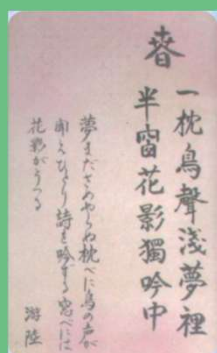 春
一枕鳥聲浅夢裡
半窗花影獨吟中
夢まださめやらぬ枕べに鳥の声が
聞えひとり詩を吟ずる窓べには
花影がうつる
游陸